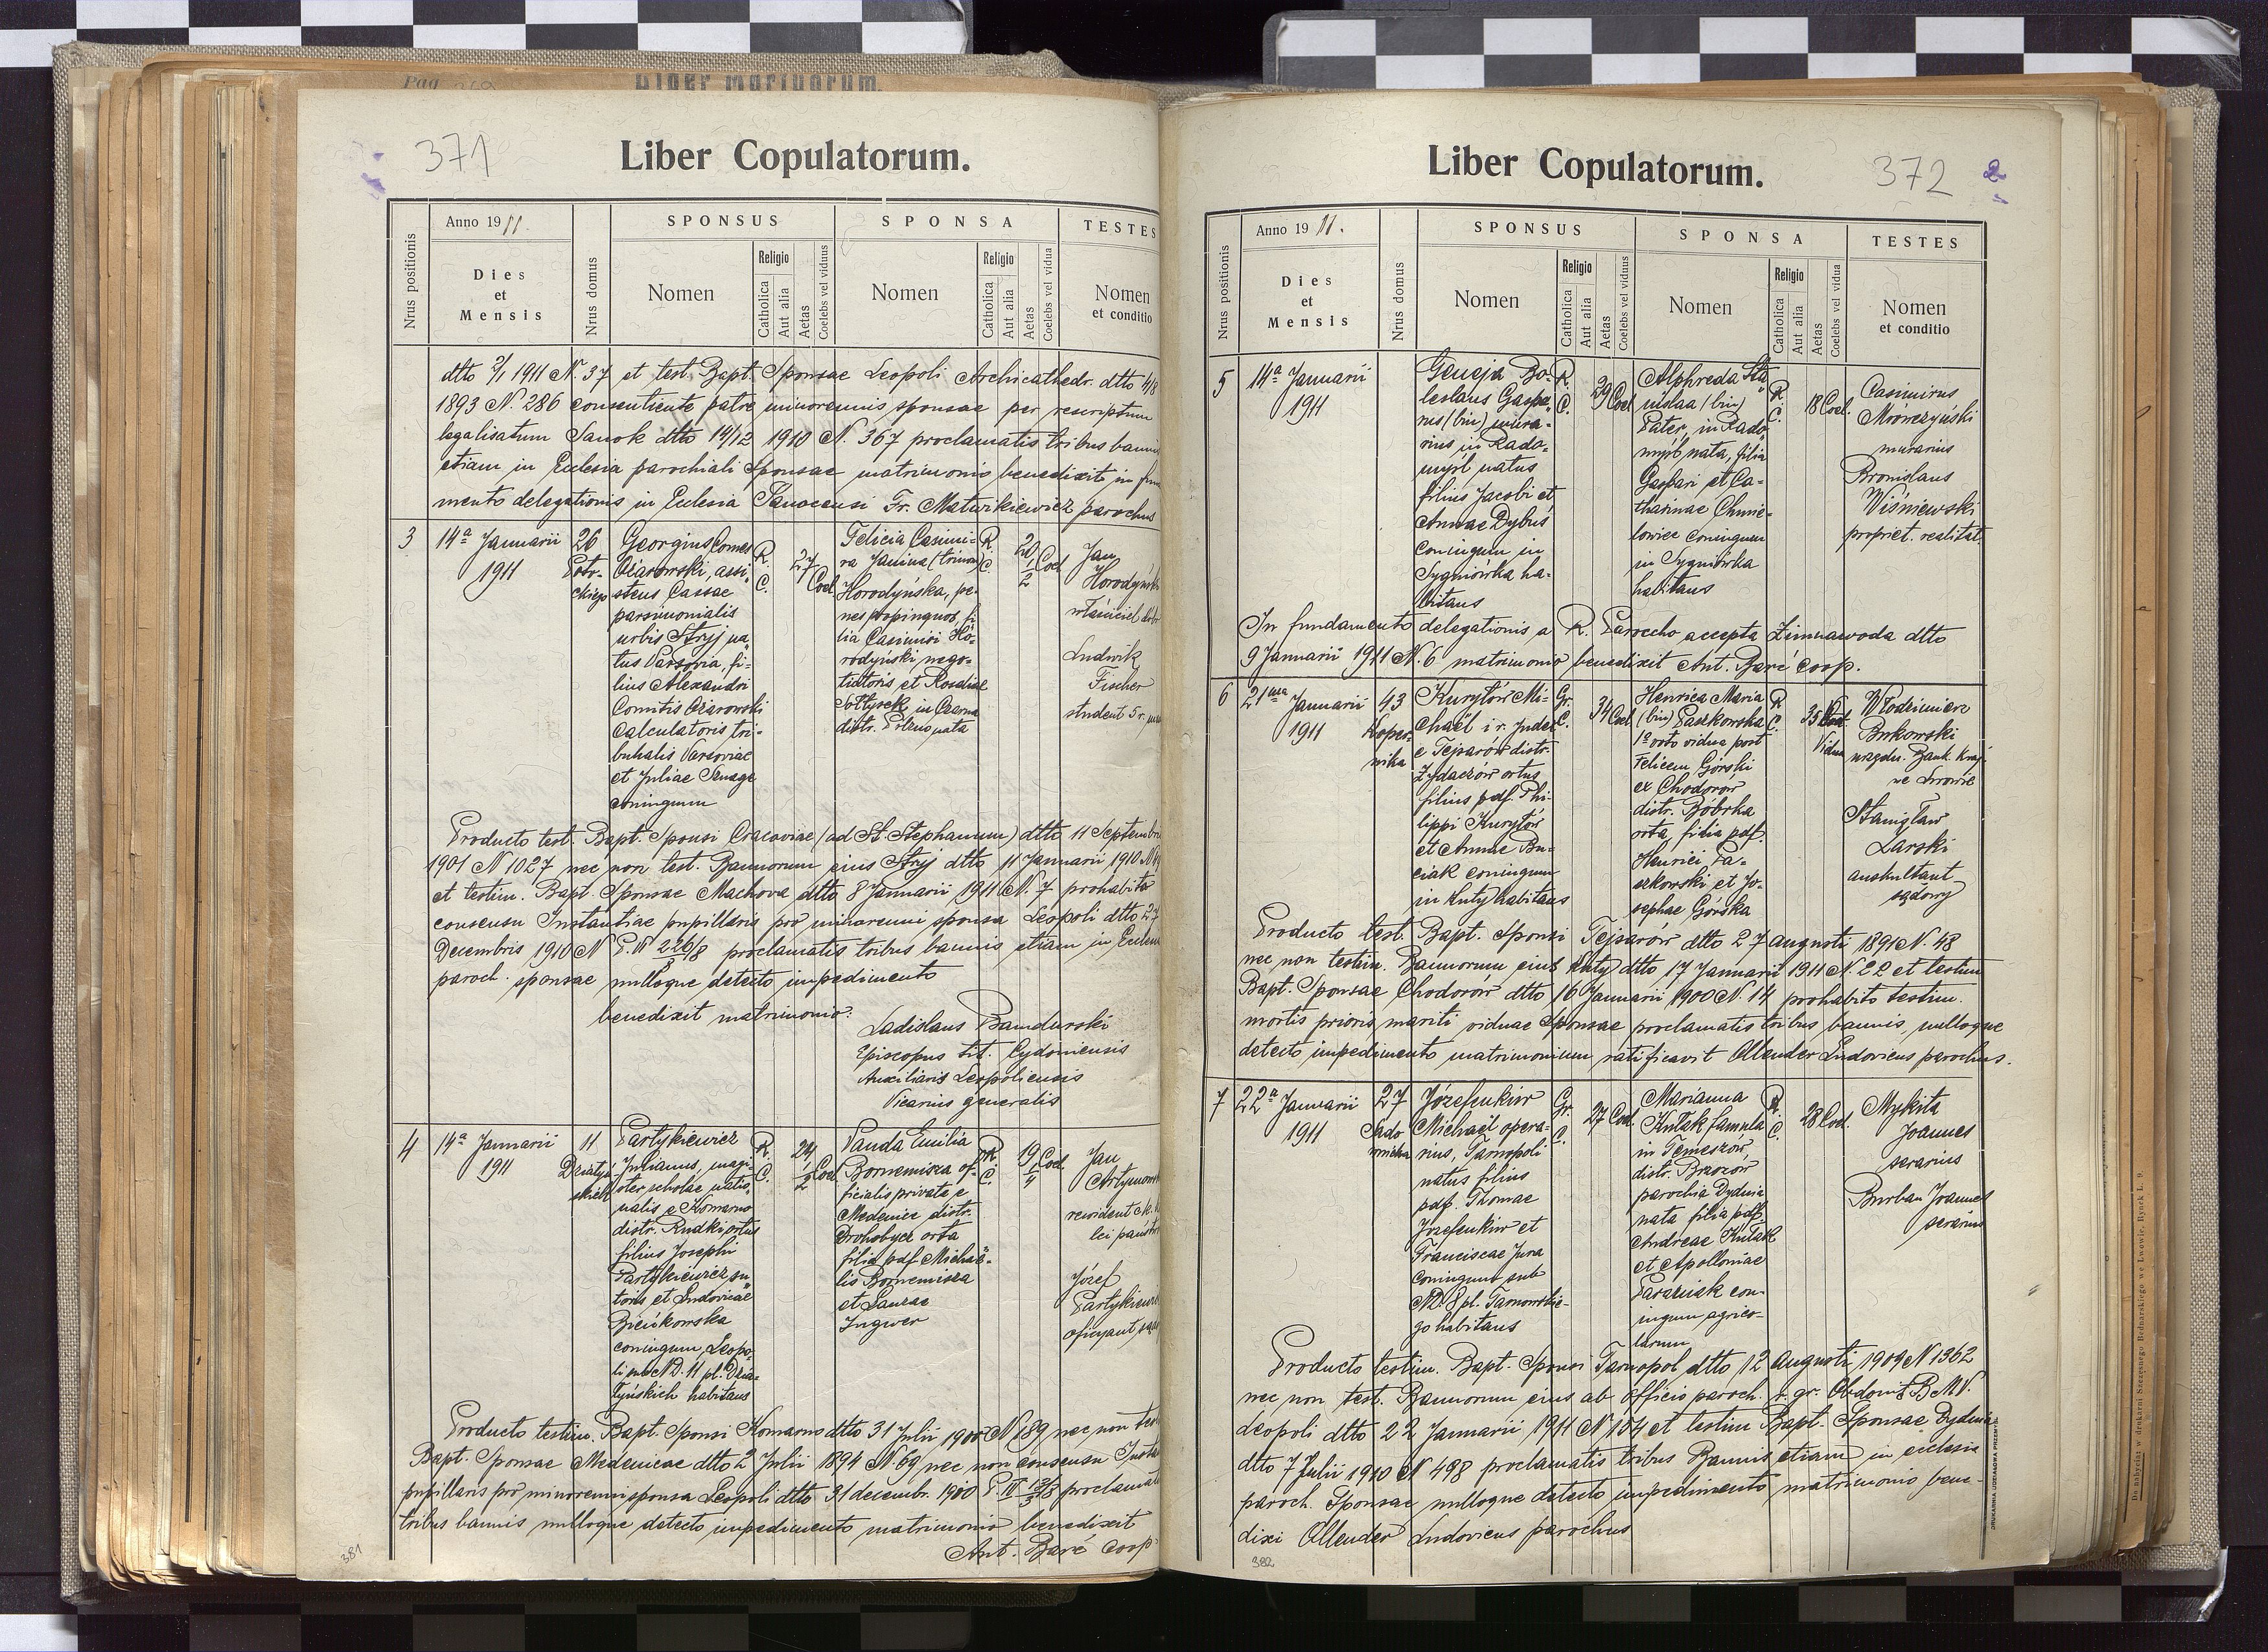 Pag
Liber mortuorum.
371
Liber Copulatorum.
Nrus positionis
Anno 1911.
Dies
et
Mensis
Nrus domus
SPONSUS
Nomen
Religio
Catholica
Aut alia
Aetas
Coelebs vel viduus
SPONSA
Nomen
Religio
Catholica
Aut alia
Aetas
Coelebs vel vidua
TESTES
Nomen
et conditio
dtto 2/1 1911 N. 37 et test. Bapt. Sponsae Leopoli Archicathedr. dtto 4/8
1893 N. 286 consentiente patre minorennis sponsae per rescriptum
legalisatum Sanok dtto 14/12 1910 N. 367 proclamatis tribus bannis
etiam in Ecclesia parochiali Sponsae matrimonio benedixit in fun
mento delegationis in Ecclesia Sanocensi Fr. Matwikiewicz parochus
3
14a Januarii
1911
26
Poto-
ckiego
Georgius Comes
Ożarowski, assi-
stens Cassae
parsimonialis
urbis Stryj na-
tus Varsovia, fi-
lius Alexandri
Comitis Ożarowski
calculatoris tri-
bunalis Varsoviae
et Juliae
coniugum
R.
C.
27
Coel
Felicia Casimi-
ra Janina (trinom)
Horodyńska, pe-
nes propinquos, fi-
lia Casimiri Ho-
rodyński nego-
tiatoris et Rosaliae
Sołtysek in Czarna
distr. Pilzno nata
R.
C.
20
1/2
Coel
Jan
Horodyński
właściciel dóbr
Ludwik
Fischer
student 5 r.
Producto test. Bapt. Sponsi Cracoviae (ad St. Stephanum) dtto 11 Septembris
1901 N 1027 nec non test. Bannorum eius Stryj dtto 11 Januarii 1910 N
et testim. Bapt. Sponsae Machowa dtto 8 Januarii 1911 N. 7 prohabito
consensu Instantiae pupillaris pro minorenni sponsa Leopoli dtto 27
Decembris 1910 N P. IV 226/8 proclamatis tribus bannis etiam in Ecclesia
paroch. sponsae nulloque detecto impedimento
benedixit matrimonio:
Ladislaus Bandurski
Episcopus tit. Cydoniensis
Auxiliaris Leopoliensis
Vicarius generalis
4
14a Januarii
1911
11
Działyń-
skich
Partykiewicz
Julianus, magi-
ster scholae natio-
nalis e Komarno
distr. Rudki ortus
filius Josephi
Partykiewicz su-
toris et Ludovicae
Bieńkowska
coniugum, Leopo-
li sub ND. 11 pl. Dzia-
łyńskich habitans
R.
C.
24
1/2
Coel
Vanda Emilia
Bornemisza of-
ficialis privata e
Medenice distr.
Drohobycz orta
filia pdf. Michaë-
lis Bornemisza
et Laurae
Ingwer
R.
C.
19
1/4
Coel.
Jan
Artymowicz
rewident c.k.
lei państw
Józef
Partykiewicz
oficyant
Producto testim. Bapt. Sponsi Komarno dtto 31 Julii 1900 N 189 nec non test
Bapt. Sponsae Medenicae dtto 2 Julii 1894 N. 69 nec non consensu Instan
pupillaris pro minorenni sponsa Leopoli dtto 31 decembr. 1900 P. IV proclamatis
tribus bannis nulloque detecto impedimento matrimonio benedixit
Ant. Baré coop
381
372
2
Liber Copulatorum.
Nrus positionis
Anno 1911.
Dies
et
Mensis
Nrus domus
SPONSUS
Nomen
Religio
Catholica
Aut alia
Aetas
Coelebs vel viduus
SPONSA
Nomen
Religio
Catholica
Aut alia
Aetas
Coelebs vel vidua
TESTES
Nomen
et conditio
5
14a Januarii
1911
Geneja Bo-
leslaus Gaspa-
rus (bin) mura-
rius in Rado-
myśl natus
filius Jacobi et
Annae Dybuś
coniugum in
Sygniówka ha-
bitans
R.
C.
29
Coel
Alphreda Sta-
nislaa (bin)
Pater, in Rado-
myśl nata, filia
Gaspari et Ca-
tharinae Chmie-
lowiec coniugum
in Sygniówka
habitans
R.
C.
18 Coel.
Casimirus
Mroweżyński
murarius
Bronislaus
Wiśniewski
propriet. realitat.
In fundamento delegationis a R. Parocho accepta Zimnawoda dtto
9 Januarii 1911 N. 6 matrimonio benedixit Ant. Baré coop.
6
21ma Januarii
1911
43
Koper-
nika
Kuryłów Mi-
chaël i. r. Judex
e Tejsarów distr.
Żydaczów ortus
filius pdf. Phi-
lippi Kuryłów
et Annae Bu-
ciak coniugum
in Kuty habitans
Gr.
C.
34 Coel
Henrica Maria
(bin) Paszkowska
1o voto vidua post
Felicem Górski
ex Chodorów
distr. Bóbrka
orta, filia pdf.
Henrici Pa-
szkowski et Jo-
sephae Górska
R.
C.
35
Vidua
Włodzimierz
Bukowski
urzędn. Bank. kraj.
we Lwowie
Stanisław
Larski
auskultant
sądowy
Producto test. Bapt. Sponsi Tejsarów dtto 27 augusti 1891 N. 48
nec non testim. Bannorum eius Kuty dtto 17 Januarii 1911 N. 22 et testim
Bapt. Sponsae Chodorów dtto 16 Januarii 1900 N. 14 prohabito testim.
mortis prioris mariti viduae Sponsae proclamatis tribus bannis, nulloque
detecto impedimento matrimonium ratificavit Ollender Ludovicus parochus.
7
22a Januarii
1911
27
Sado-
wnicka
Józefenkiw
Michaël opera-
rius, Tarnopoli
natus filius
pdf. Thomae
Józefenkiw et
Franciscae Jura
coniugum sub
ND. 8 pl. Tarnowskie-
go habitans
Gr.
C.
27 Coel.
Marianna
Kułak famula
in Temeszów,
distr. Brzozów
parochia Dydnia
nata filia pdf.
Andreae Kułak
et Apolloniae
Paraniak con-
iugum agrico-
larum
R.
C.
28 Coel.
Mykita
Joannes
serarius
Burban Joannes
serarius
Producto testim. Bapt. Sponsi Tarnopol dtto 12 augusti 1909 N 1362
nec non test. Bannorum eius ab officio paroch. r. gr. Obdormit. B.M.V.
Leopoli dtto 22 Januarii 1911 N 154 et testim Bapt. Sponsae Dydnia
dtto 7 Julii 1910 N 498 proclamatis tribus Bannis etiam in ecclesia
paroch. Sponsae nulloque detecto impedimento matrimonio bene-
dixi Ollender Ludovicus parochus
382
DRUKARNIA UDZIAŁOWA PRZEMYŚL
Do nabycia w drukarni Szczęsnego Bednarskiego we Lwowie, Rynek L. 9.